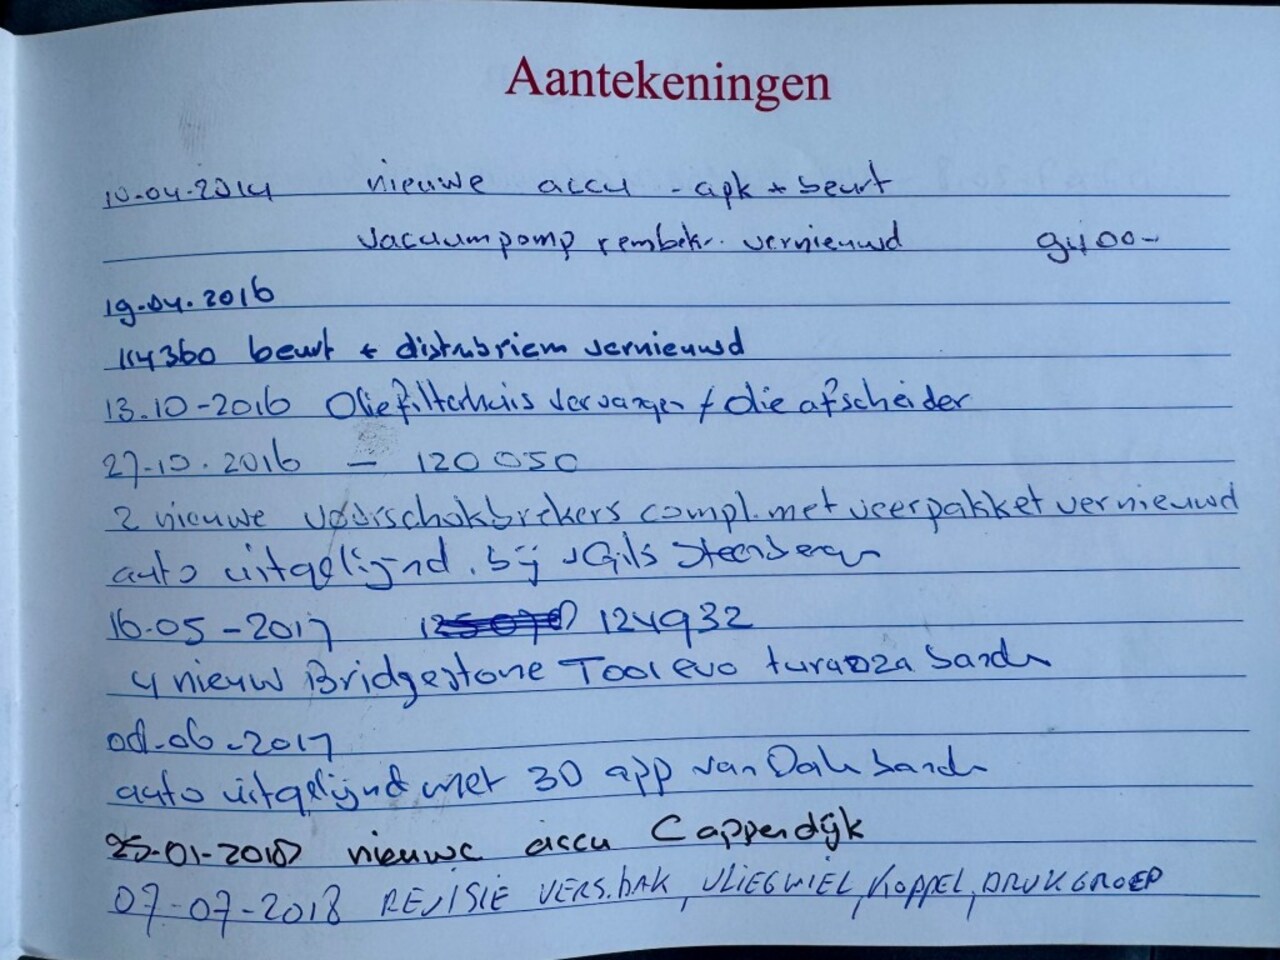 Aantekeningen
10-04-2014 nieuwe accu - apk + beurt
vacuumpomp rembekr. vernieuwd 94100-
19-04-2016
114360 beurt + distribriem vernieuwd
13.10-2016 Oliefilterhuis vervangen / olie afscheider
27-10.2016 - 120050
2 nieuwe voorschokbrekers compl. met veerpakket vernieuwd
auto uitgelijnd. bij vGils Steenbergen
16-05-2017 124932
4 nieuw Bridgestone T001 evo turanza banden
-06-2017
auto uitgelijnd met 3D app van banden
25-01-2018 nieuwe accu Cappendijk
07-07-2018 REVISIE VERS.BAK, VLIEGWIEL, KOPPEL, DRUKGROEP